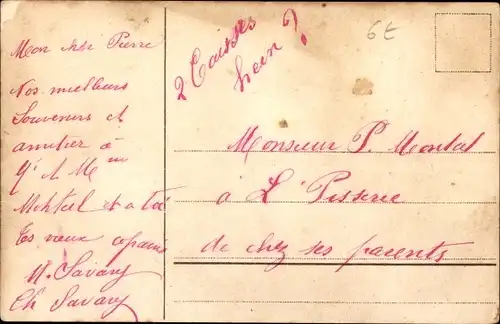 Mon cher Pierre
Nos meilleurs
Souvenirs et
amitiés à
Mr et Mme
et à toi
tes vieux copains
H. Savary
Ch Savary
2 Caisses
hein ?
6E
Monsieur P. Montal
à L'Pisserie
de chez ses parents